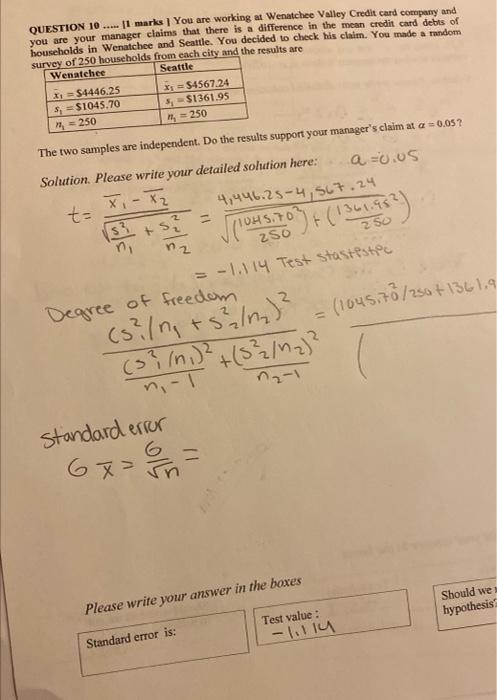 QUESTION 10 ..... [1 marks ] You are working at Wenatchee Valley Credit card company and
you are your manager claims that there is a difference in the mean credit card debts of
households in Wenatchee and Seattle. You decided to check his claim. You made a random
survey of 250 households from each city and the results are
Wenatchee Seattle
x̄₁ = $4446.25 x̄₁ = $4567.24
s₁ = $1045.70 s₁ = $1361.95
n₁ = 250 n₁ = 250
The two samples are independent. Do the results support your manager's claim at α = 0.05?
Solution. Please write your detailed solution here: a = 0.05
t = (x̄₁ - x̄₂) / √(s²₁/n₁ + s²₂/n₂) = (4,446.25 - 4,567.24) / √((1045.70²/250) + (1361.95²/250))
= -1.114 Test stastistic
Degree of freedom
(s²₁/n₁ + s²₂/n₂)² / ((s²₁/n₁)²/(n₁-1) + (s²₂/n₂)²/(n₂-1)) = (1045.70²/250 + 1361.9
(
Standard error
6 x̄ = 6/√n =
Please write your answer in the boxes
Standard error is:
Test value :
-1.114
Should we
hypothesis?